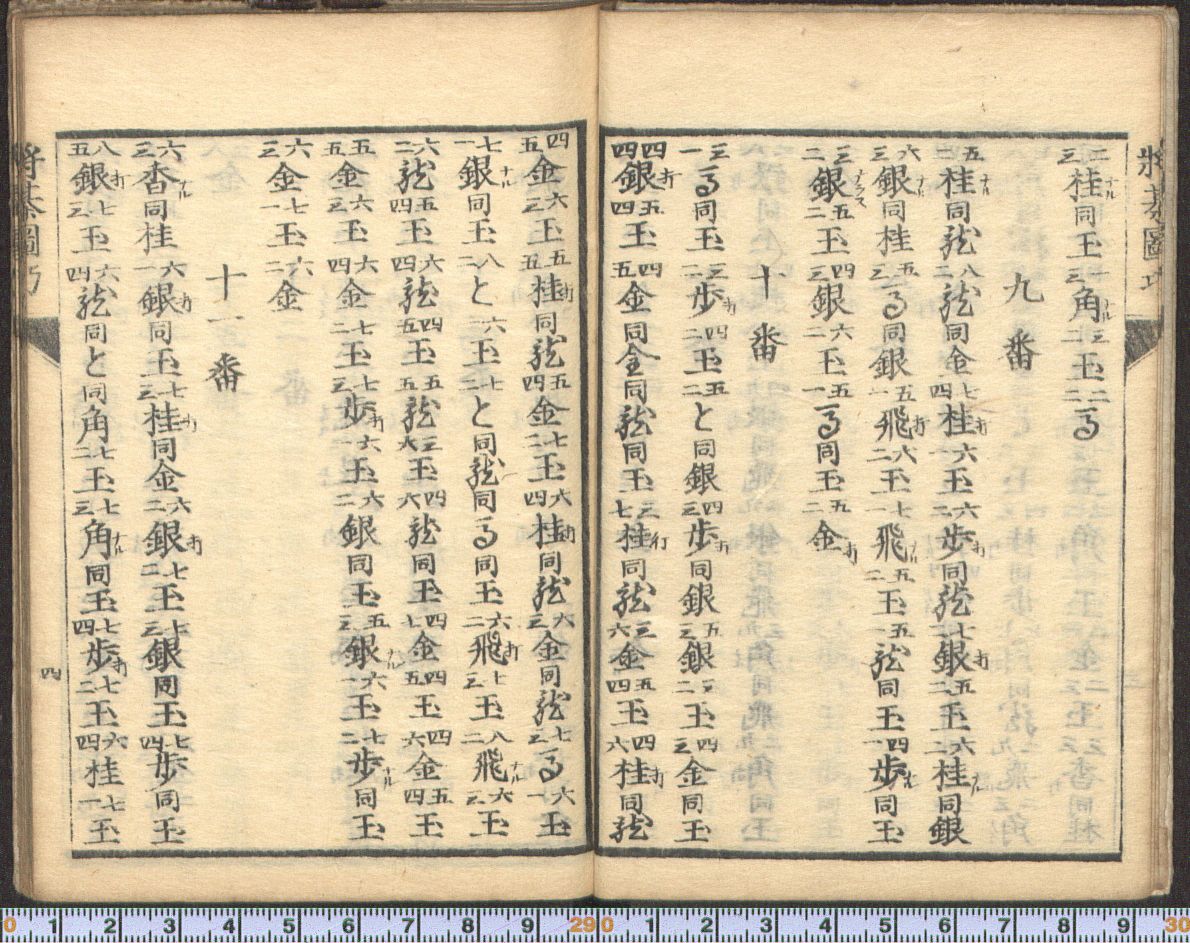 將棊圖巧
二三桂ナル同玉一三角ナル三二玉二二馬
九番
五二桂ナル同龍八二龍同金七四桂打六一玉六二歩打同龍七二銀打五二玉六二桂ナル同銀
六三銀ナル同桂五三馬同銀五一飛打六二玉七一飛ナル五二玉五一龍同玉四一歩ナル同玉
三二銀ナラズ五二玉四三銀六二玉五一馬同玉五二金打
十番
三一馬同玉三二歩打四二玉五二と同銀四三歩打同銀五三銀三二玉四三金同玉
四四銀打五四玉四五金同金同龍同玉三七桂打同龍三六金五四玉四六桂打同龍
四五金六三玉五五桂打同龍五四金七二玉六四桂打同龍六三金同龍七三馬六一玉
七一銀ナル同玉八二と六一玉七二と同龍同馬同玉六二飛打七三玉八二飛ナル六三玉
六二龍五四玉六四龍四五玉五五龍三六玉四六龍同玉四七金四五玉四六金五四玉
五五金六三玉六四金七二玉七三歩打六一玉六二銀同玉五三銀ナル六一玉七二歩ナル同玉
六三金七一玉六二金
十一番
六三香ナル同桂六一銀打同玉七三桂打同金六二銀打七二玉七三銀同玉七四歩同玉
八五銀打七三玉六四龍同と同角七二玉七三角ナル同玉七四歩打七二玉六四桂七一玉
將棊圖巧
四